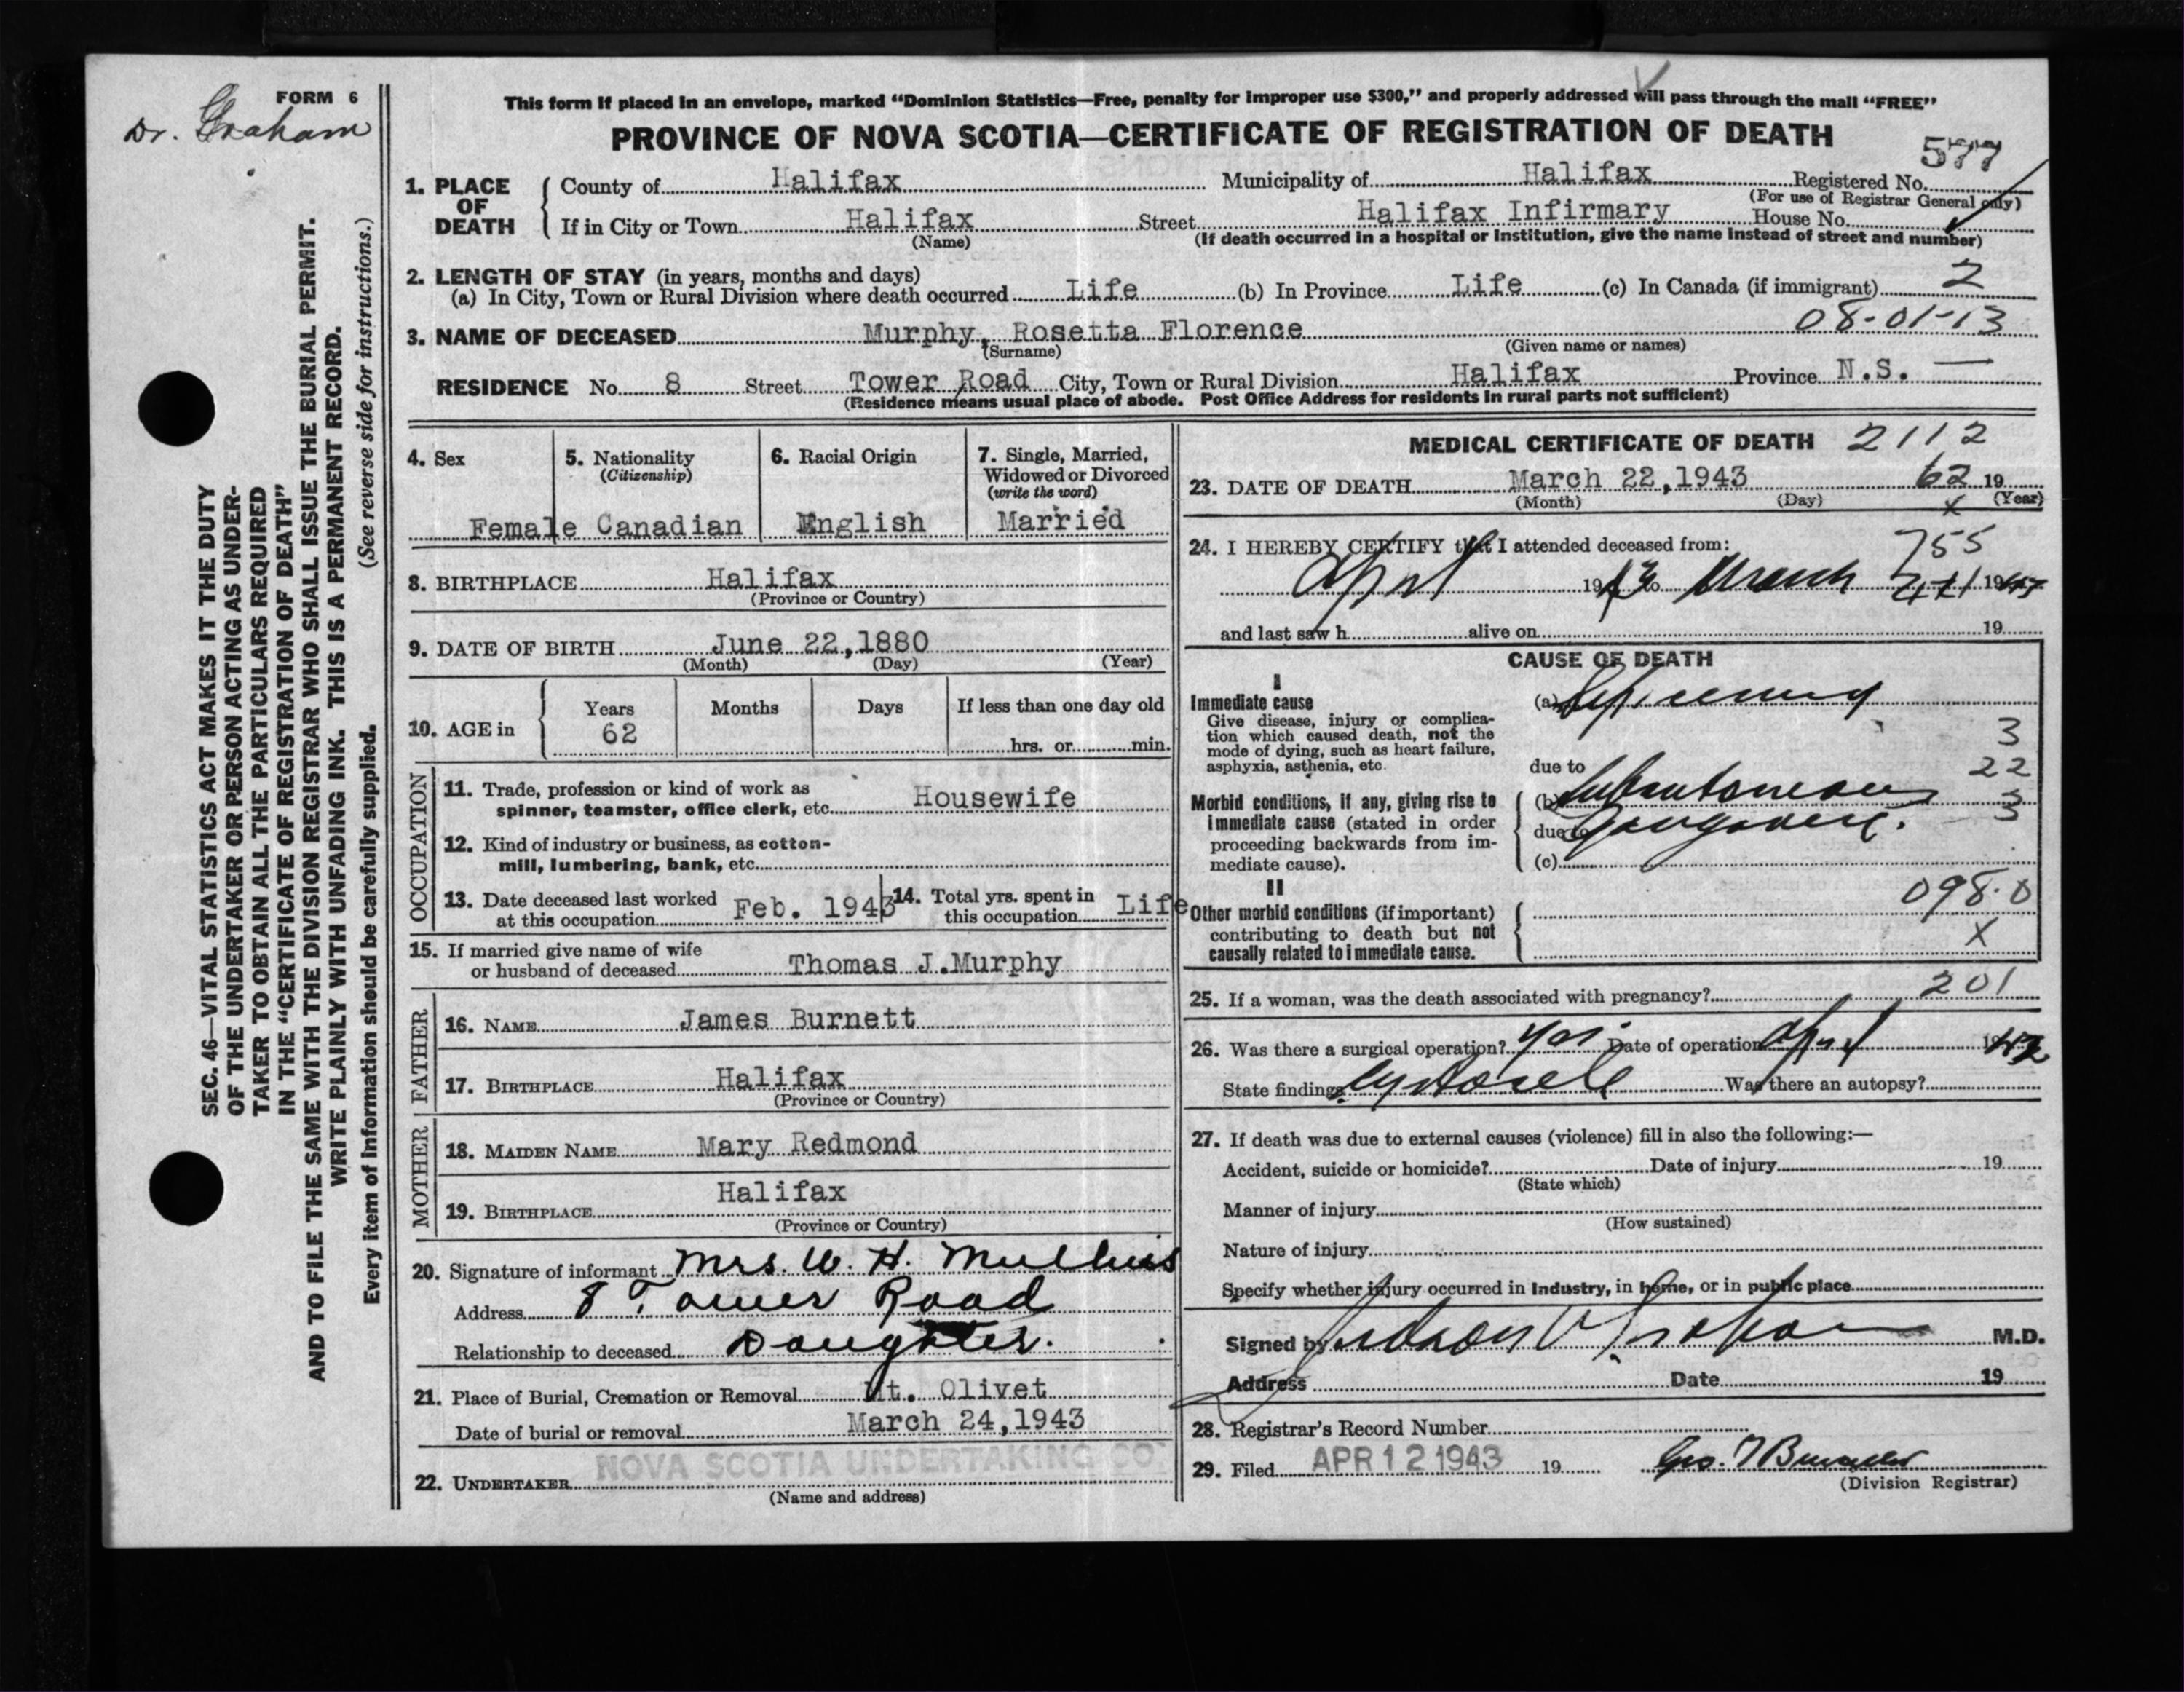 FORM 6
Dr. Graham
This form if placed in an envelope, marked “Dominion Statistics—Free, penalty for improper use $300,” and properly addressed will pass through the mail “FREE”
PROVINCE OF NOVA SCOTIA—CERTIFICATE OF REGISTRATION OF DEATH
577
1. PLACE OF DEATH
County of Halifax Municipality of Halifax Registered No.
(For use of Registrar General only)
If in City or Town Halifax Street Halifax Infirmary House No.
(Name) (If death occurred in a hospital or institution, give the name instead of street and number)
2. LENGTH OF STAY (in years, months and days)
(a) In City, Town or Rural Division where death occurred Life (b) In Province Life (c) In Canada (if immigrant) 2
08-01-13
3. NAME OF DECEASED Murphy, Rosetta Florence
(Surname) (Given name or names)
RESIDENCE No. 8 Street Tower Road City, Town or Rural Division Halifax Province N.S. —
(Residence means usual place of abode. Post Office Address for residents in rural parts not sufficient)
4. Sex
Female
5. Nationality
(Citizenship)
Canadian
6. Racial Origin
English
7. Single, Married,
Widowed or Divorced
(write the word)
Married
8. BIRTHPLACE Halifax
(Province or Country)
9. DATE OF BIRTH June 22,1880
(Month) (Day) (Year)
10. AGE in
Years Months Days If less than one day old
62 hrs. or min.
OCCUPATION
11. Trade, profession or kind of work as
spinner, teamster, office clerk, etc. Housewife
12. Kind of industry or business, as cotton-
mill, lumbering, bank, etc.
13. Date deceased last worked
at this occupation Feb. 1943
14. Total yrs. spent in
this occupation Life
15. If married give name of wife
or husband of deceased Thomas J.Murphy
FATHER
16. NAME James Burnett
17. BIRTHPLACE Halifax
(Province or Country)
MOTHER
18. MAIDEN NAME Mary Redmond
19. BIRTHPLACE Halifax
(Province or Country)
20. Signature of informant Mrs. W. H.
Address 8 Tower Road
Relationship to deceased Daughter.
21. Place of Burial, Cremation or Removal Mt. Olivet
Date of burial or removal March 24,1943
22. UNDERTAKER NOVA SCOTIA UNDERTAKING CO.
(Name and address)
MEDICAL CERTIFICATE OF DEATH 2112
23. DATE OF DEATH March 22,1943 62 19
(Month) (Day) (Year)
x
24. I HEREBY CERTIFY that I attended deceased from:
755
April 19 to March 19
and last saw h alive on 19
CAUSE OF DEATH
I
Immediate cause
Give disease, injury or complica-
tion which caused death, not the
mode of dying, such as heart failure,
asphyxia, asthenia, etc.
(a)
3
due to
22
Morbid conditions, if any, giving rise to
immediate cause (stated in order
proceeding backwards from im-
mediate cause).
(b) Subcutaneous
3
due to gangrene.
(c)
II
Other morbid conditions (if important)
contributing to death but not
causally related to immediate cause.
098.0
X
25. If a woman, was the death associated with pregnancy? 201
26. Was there a surgical operation? yes Date of operation April 19 42
State findings cystocele Was there an autopsy?
27. If death was due to external causes (violence) fill in also the following:—
Accident, suicide or homicide? Date of injury 19
(State which)
Manner of injury
(How sustained)
Nature of injury
Specify whether injury occurred in industry, in home, or in public place
Signed by Judson V Graham M.D.
Address Date 19
28. Registrar's Record Number
29. Filed APR 12 1943 19
(Division Registrar)
SEC. 46—VITAL STATISTICS ACT MAKES IT THE DUTY
OF THE UNDERTAKER OR PERSON ACTING AS UNDER-
TAKER TO OBTAIN ALL THE PARTICULARS REQUIRED
IN THE “CERTIFICATE OF REGISTRATION OF DEATH”
AND TO FILE THE SAME WITH THE DIVISION REGISTRAR WHO SHALL ISSUE THE BURIAL PERMIT.
WRITE PLAINLY WITH UNFADING INK. THIS IS A PERMANENT RECORD.
Every item of information should be carefully supplied. (See reverse side for instructions.)